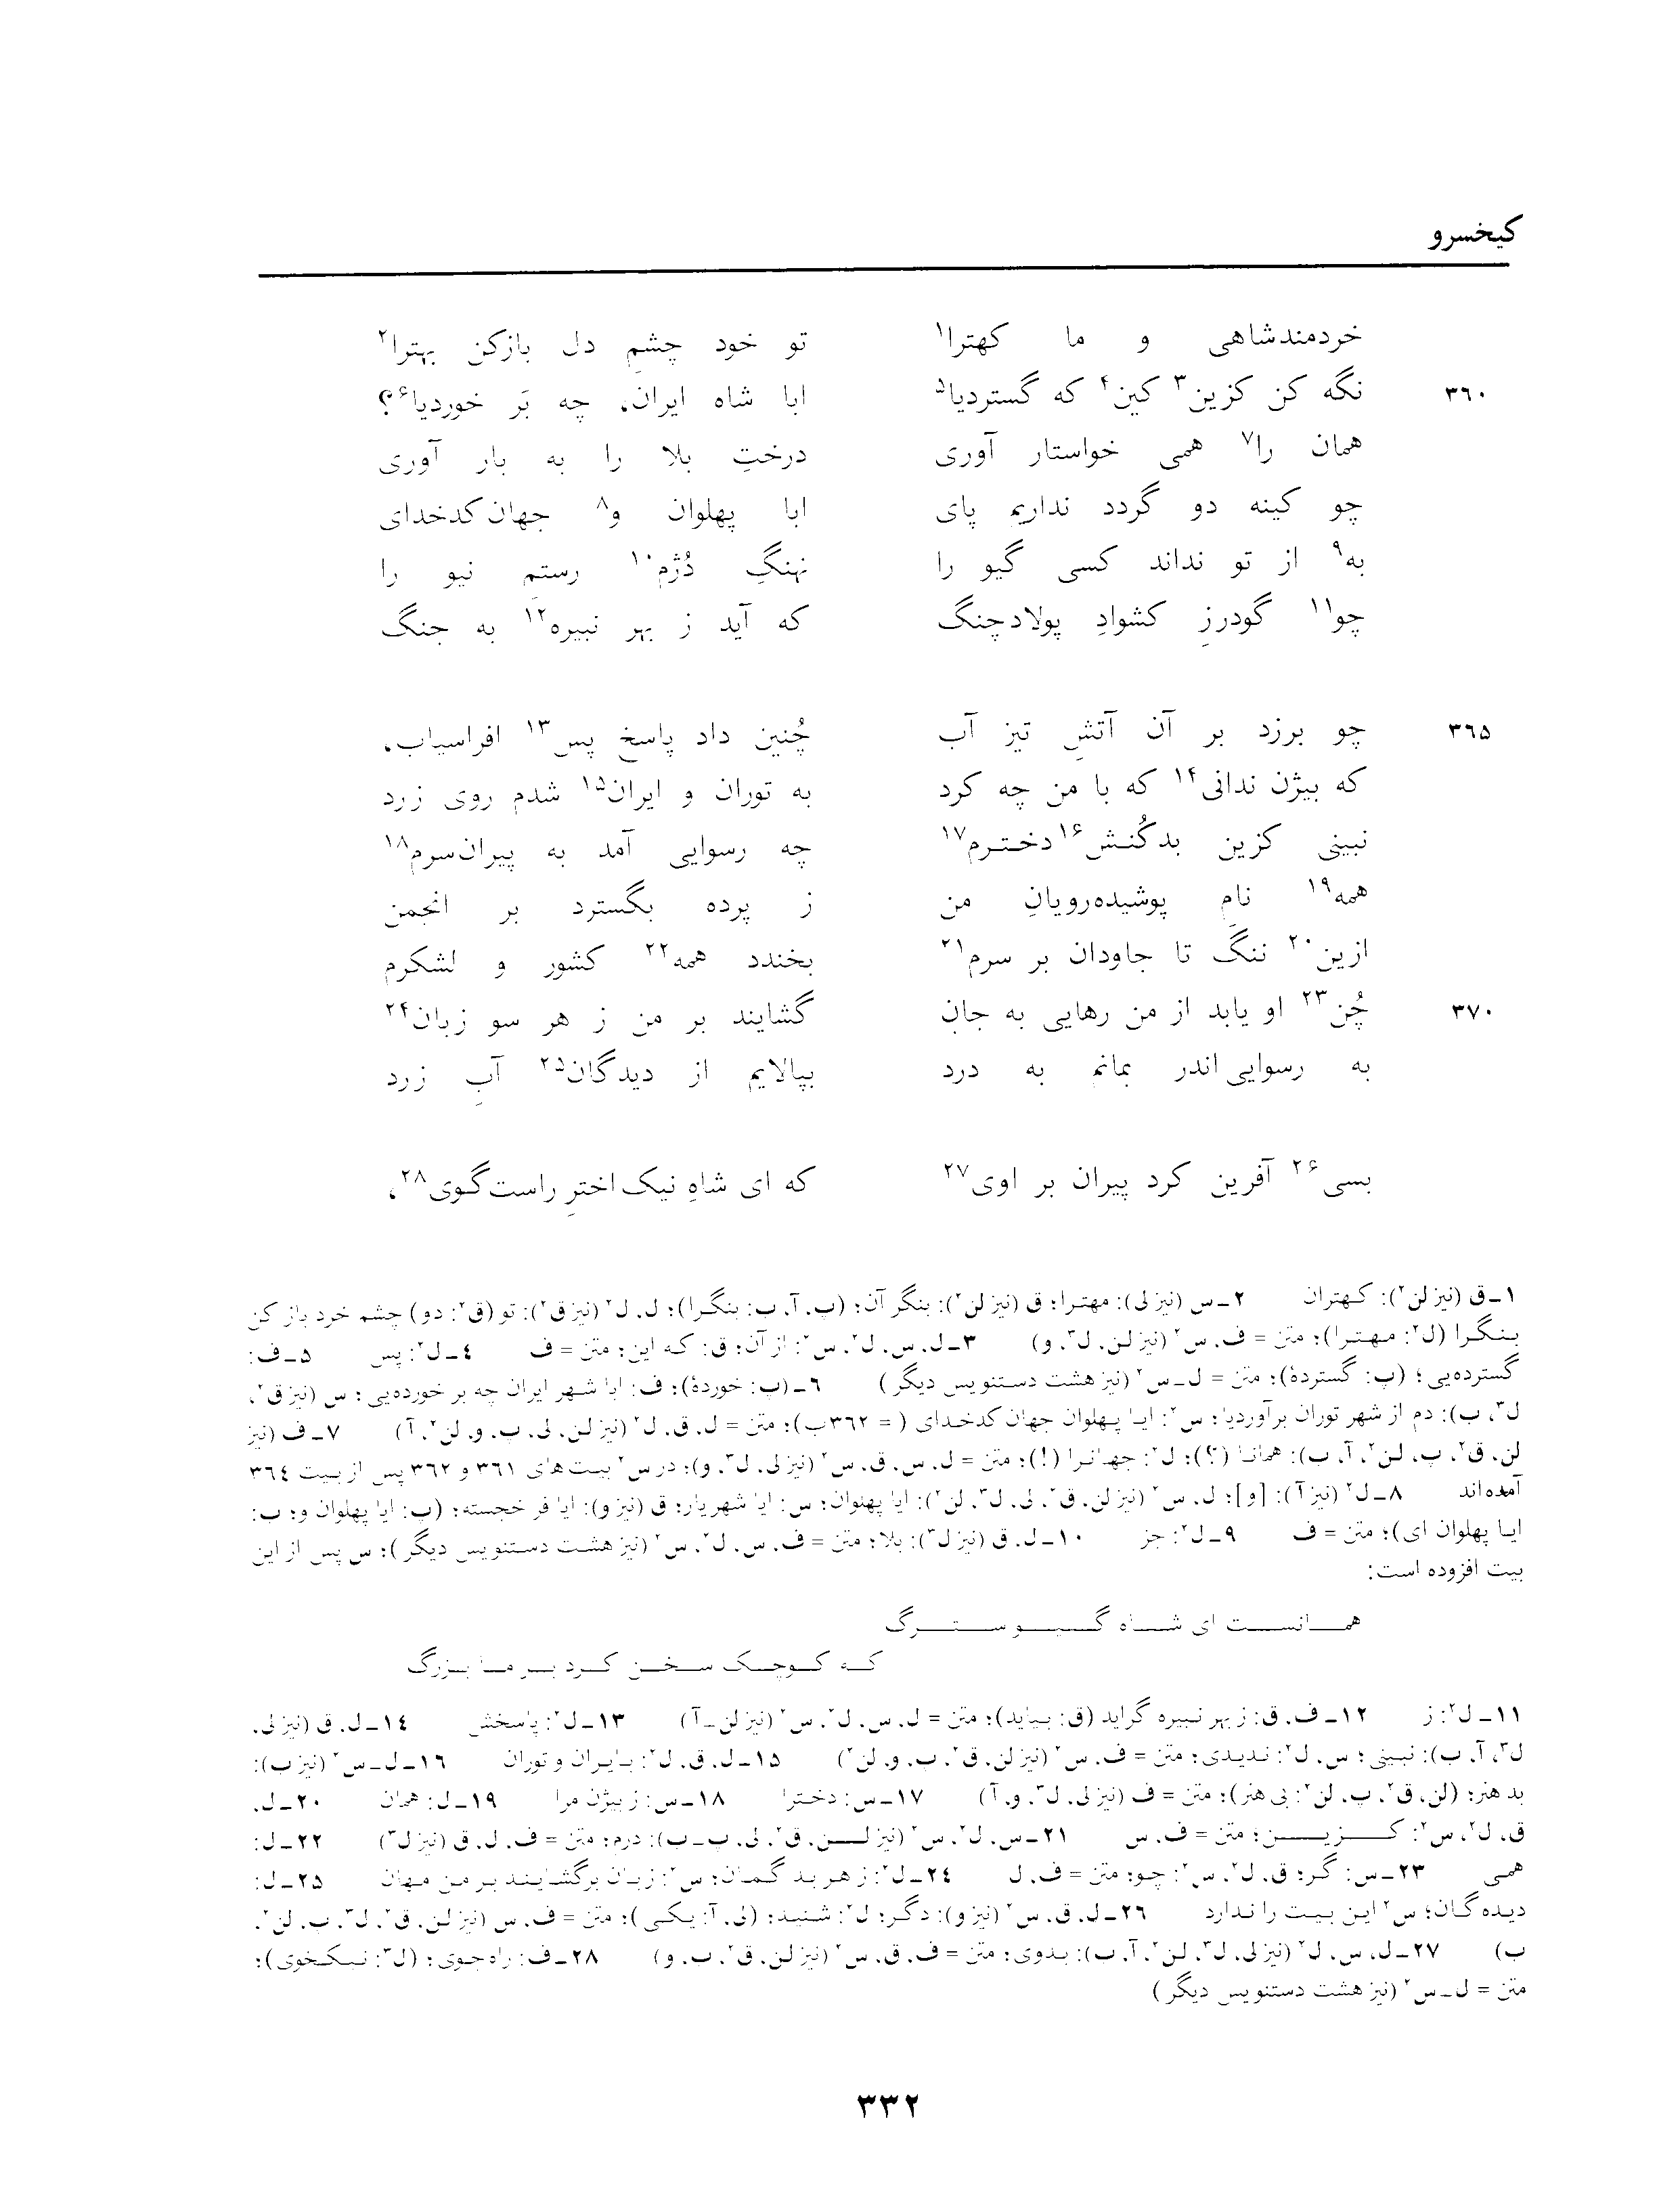 کیخسرو
خردمندشاهی و ما کهترا۱ تو خود چشمِ دل بازکن بهترا۲
۳٦۰ نگه کن کزین۳ کین۴ که گستردیا۵ ابا شاه ایران، چه بَر خوردیا۶؟
همان را۷ همی خواستار آوری درختِ بلا را به بار آوری
چو کینه دو گردد نداریم پای ابا پهلوان و۸ جهان‌کدخدای
به۹ از تو نداند کسی گیو را نهنگِ دُژم۱۰ رستمِ نیو را
چو۱۱ گودرزِ کشوادِ پولادچنگ که آید ز بهر نبیره۱۲ به جنگ
۳٦۵ چو برزد بر آن آتشِ تیز آب چُنین داد پاسخ پس۱۳ افراسیاب،
که بیژن ندانی۱۴ که با من چه کرد به توران و ایران۱۵ شدم روی زرد
نبینی کزین بدکُنش۱۶ دخترم۱۷ چه رسوایی آمد به پیران‌سرم۱۸
همه۱۹ نامِ پوشیده‌رویانِ من ز پرده بگسترد بر انجمن
ازین۲۰ ننگ تا جاودان بر سرم۲۱ بخندد همه۲۲ کشور و لشکرم
۳۷۰ چُن۲۳ او یابد از من رهایی به جان گشایند بر من ز هر سو زبان۲۴
به رسوایی‌اندر بمانم به درد بپالایم از دیدگان۲۵ آبِ زرد
بسی۲۶ آفرین کرد پیران بر اوی۲۷ که ای شاهِ نیک‌اخترِ راست‌گوی۲۸،
۱ـ ق (نیز لن۲): کهتران ۲ـ س (نیز لی): مهترا؛ ق (نیز لن۲): بنگر آن؛ (پ، آ، ب: بنگرا)؛ ل، ل۲ (نیز ق۲): تو (ق۲: دو) چشم خرد باز کن
بنگرا (ل۲: مهترا)؛ متن = ف، س۲ (نیز لن، ل۳، و) ۳ـ ل، س، ل۲، س۲: از آن؛ ق: که این؛ متن = ف ٤ـ ل۲: پس ۵ـ ف:
گسترده‌یی؛ (پ: گستردهٔ)؛ متن = ل ـ س۲ (نیز هشت دستنویس دیگر) ٦ـ (پ: خوردهٔ)؛ ف: ابا شهر ایران چه بر خورده‌یی؛ س (نیز ق۲،
ل۳، ب): دم از شهر توران برآوردیا؛ س۲: ایا پهلوان جهان کدخدای ( = ۳٦۲ب)؛ متن = ل، ق، ل۲ (نیز لن، لی، پ، و، لن۲، آ) ۷ـ ف (نیز
لن، ق۲، پ، لن۲، آ، ب): همانا (؟)؛ ل۲: جهانرا (!)؛ متن = ل، س، ق، س۲ (نیز لی، ل۳، و)؛ در س۲ بیت‌های ۳٦۱ و ۳٦۲ پس از بیت ۳٦٤
آمده‌اند ۸ـ ل۲ (نیز آ): [و]؛ ل، س۲ (نیز لن، ق۲، لی، ل۳، لن۲): ایا پهلوان؛ س: ایا شهریار؛ ق (نیز و): ایا فر خجسته؛ (پ: ایا پهلوان و؛ ب:
ایا پهلوان ای)؛ متن = ف ۹ـ ل۲: جز ۱۰ـ ل، ق (نیز ل۳): بلا؛ متن = ف، س، ل۲، س۲ (نیز هشت دستنویس دیگر)؛ س پس از این
بیت افزوده است:
همانست ای شاه گیو سترگ
که کوچک سخن کرد بر ما بزرگ
۱۱ـ ل۲: ز ۱۲ـ ف، ق: ز بهر نبیره گراید (ق: بیاید)؛ متن = ل، س، ل۲، س۲ (نیز لن ـ آ) ۱۳ـ ل۲: پاسخش ۱٤ـ ل، ق (نیز لی،
ل۳، آ، ب): نبینی؛ س، ل۲: ندیدی؛ متن = ف، س۲ (نیز لن، ق۲، پ، و، لن۲) ۱۵ـ ل، ق، ل۲: بایران و توران ۱٦ـ ل ـ س۲ (نیز ب):
بد هنر؛ (لن، ق۲، پ، لن۲: بی هنر)؛ متن = ف (نیز لی، ل۳، و، آ) ۱۷ـ س: دخترا ۱۸ـ س: ز بیژن مرا ۱۹ـ ل: همان ۲۰ـ ل،
ق، ل۲، س۲: کزین؛ متن = ف، س ۲۱ـ س، ل۲، س۲ (نیز لن، ق۲، لی، پ ـ ب): درم؛ متن = ف، ل، ق (نیز ل۳) ۲۲ـ ل:
همی ۲۳ـ س: گر؛ ق، ل۲، س۲: چو؛ متن = ف، ل ۲٤ـ ل۲: ز هر بد گمان؛ س۲: زبان برگشایند بر من مهان ۲۵ـ ل:
دیده گان؛ س۲ این بیت را ندارد ۲٦ـ ل، ق، س۲ (نیز و): دگر؛ ل۲: شنید؛ (لی، آ: یکی)؛ متن = ف، س (نیز لن، ق۲، ل۳، پ، لن۲،
ب) ۲۷ـ ل، س، ل۲ (نیز لی، ل۳، لن۲، آ، ب): بدوی؛ متن = ف، ق، س۲ (نیز لن، ق۲، پ، و) ۲۸ـ ف: راه جوی؛ (ل۳: نیکخوی)؛
متن = ل ـ س۲ (نیز هشت دستنویس دیگر)
۳۳۲